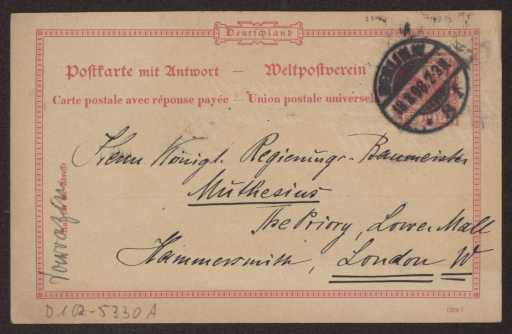 Deutschland
Postkarte mit Antwort — Weltpostverein
Carte postale avec réponse payée — Union postale universelle
BERLIN W
Herrn Königl. Regierungs-Baumeister
Muthesius
The Priory, Lower Mall
Hammersmith, London W
D 102-5330 A